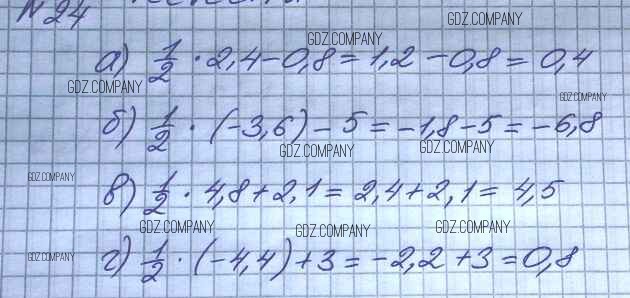 №24
GDZ.COMPANY
GDZ.COMPANY
а) 1/2 · 2,4 - 0,8 = 1,2 - 0,8 = 0,4
GDZ.COMPANY
GDZ.COMPANY
б) 1/2 · (-3,6) - 5 = -1,8 - 5 = -6,8
GDZ.COMPANY
GDZ.COMPANY
GDZ.COMPANY
в) 1/2 · 4,8 + 2,1 = 2,4 + 2,1 = 4,5
GDZ.COMPANY
GDZ.COMPANY
GDZ.COMPANY
GDZ.COMPANY
г) 1/2 · (-4,4) + 3 = -2,2 + 3 = 0,8